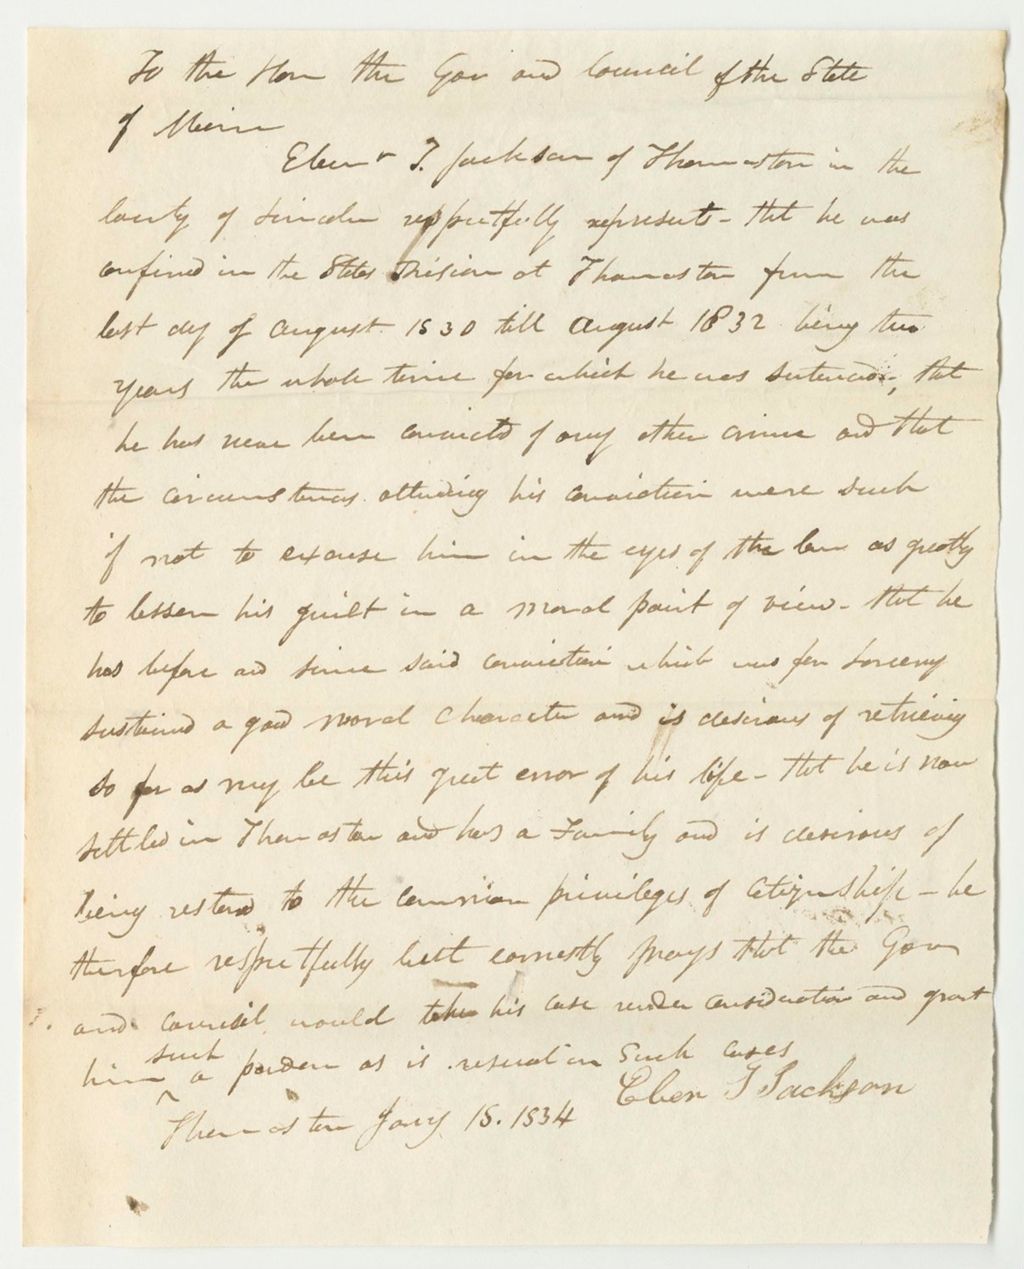 To the Hon the Gov and Council of the State
of Maine
Ebenr T. Jackson of Thomaston in the
County of Lincoln respectfully represents - that he was
confined in the States Prision at Thomaston from the
last day of August 1830 till August 1832 being two
years the whole time for which he was sentenced, that
he has never been convicted of any other crime and that
the circumstances attending his conviction were such
if not to excuse him in the eyes of the law as greatly
to lessen his guilt in a moral point of view - that he
has before and since said conviction which was for larceny
sustained a good moral character and is desirous of retrieving
so far as may be this great error of his life - that he is now
settled in Thomaston and has a Family and is desirous of
being restored to the common privileges of citizenship - he
therefore respectfully but earnestly prays that the Gov
and council would take his case under consideration and grant
him such a pardon as is usual in such cases
Eben T Jackson
Thomaston Jany 15. 1834